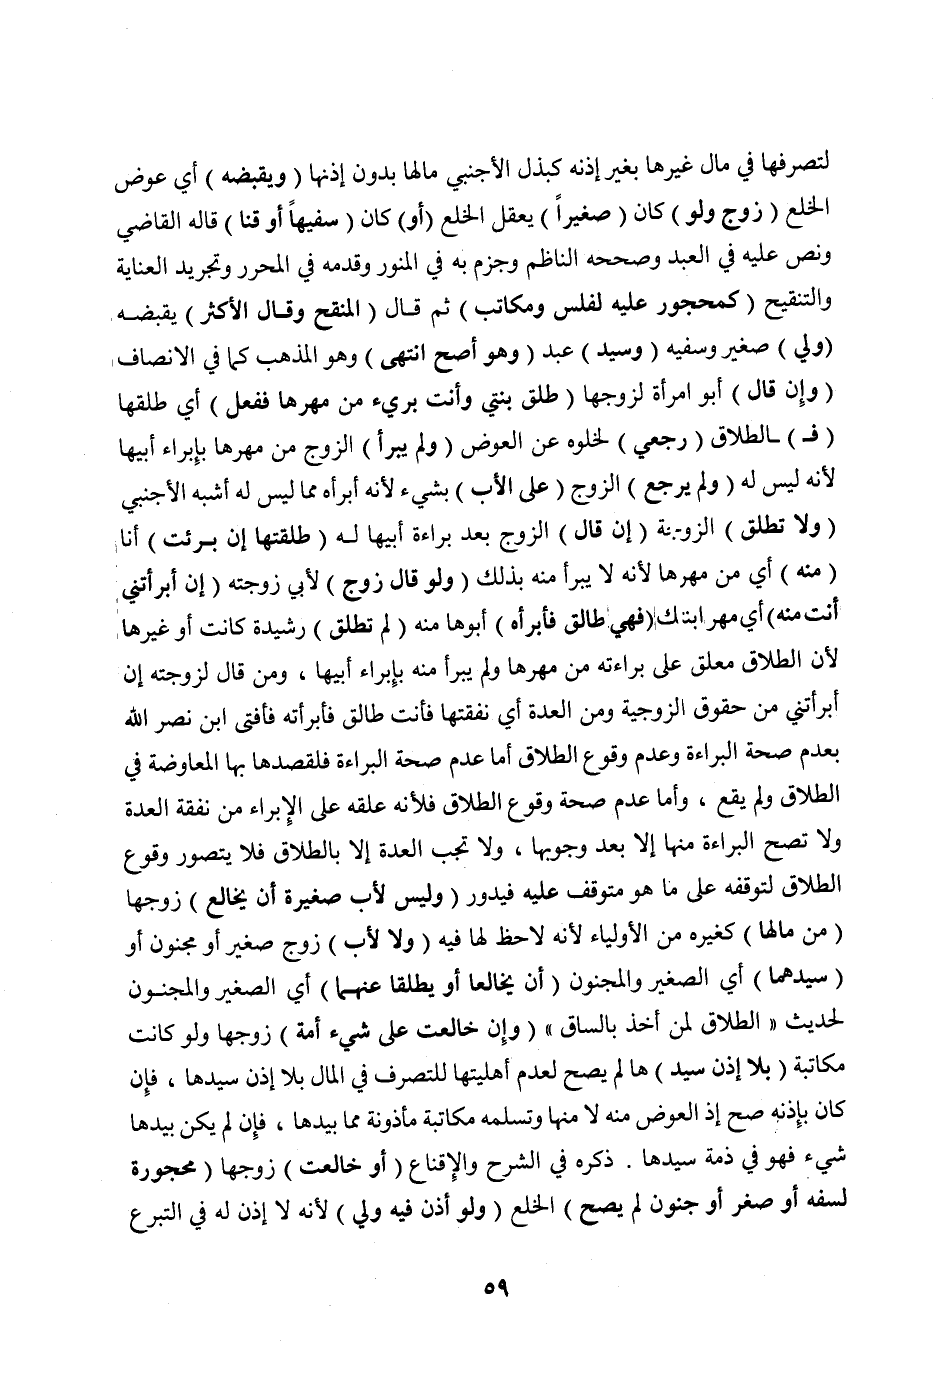 لتصرفها في مال غيرها بغير إذنه كبذل الأجنبي مالها بدون إذنها ( ويقبضه ) أي عوض
الخلع ( زوج ولو ) كان ( صغيراً ) يعقل الخلع (أو) كان ( سفيهاً أو قنا ) قاله القاضي
ونص عليه في العبد وصححه الناظم وجزم به في المنور وقدمه في المحرر وتجريد العناية
والتنقيح ( كمحجور عليه لفلس ومكاتب ) ثم قال ( المنقح وقال الأكثر ) يقبضه
(ولي ) صغير وسفيه ( وسيد ) عبد ( وهو أصح انتهى ) وهو المذهب كما في الانصاف
( وإن قال ) أبو امرأة لزوجها ( طلق بنتي وأنت بريء من مهرها ففعل ) أي طلقها
( فـ ) ـالطلاق ( رجعي ) لخلوه عن العوض ( ولم يبرأ ) الزوج من مهرها بإبراء أبيها
لأنه ليس له ( ولم يرجع ) الزوج ( على الأب ) بشيء لأنه أبرأه مما ليس له أشبه الأجنبي
( ولا تطلق ) الزوجة ( إن قال ) الزوج بعد براءة أبيها له ( طلقتها إن برئت ) أنا
( منه ) أي من مهرها لأنه لا يبرأ منه بذلك ( ولو قال زوج ) لأبي زوجته ( إن أبرأتني
أنت منه) أي مهر ابنتك (فهي طالق فأبرأه ) أبوها منه ( لم تطلق ) رشيدة كانت أو غيرها
لأن الطلاق معلق على براءته من مهرها ولم يبرأ منه بإبراء أبيها ، ومن قال لزوجته إن
أبرأتني من حقوق الزوجية ومن العدة أي نفقتها فأنت طالق فأبرأته فأفتى ابن نصر الله
بعدم صحة البراءة وعدم وقوع الطلاق أما عدم صحة البراءة فلقصدها بها المعاوضة في
الطلاق ولم يقع ، وأما عدم صحة وقوع الطلاق فلأنه علقه على الإبراء من نفقة العدة
ولا تصح البراءة منها إلا بعد وجوبها ، ولا تجب العدة إلا بالطلاق فلا يتصور وقوع
الطلاق لتوقفه على ما هو متوقف عليه فيدور ( وليس لأب صغيرة أن يخالع ) زوجها
( من مالها ) كغيره من الأولياء لأنه لاحظ لها فيه ( ولا لأب ) زوج صغير أو مجنون أو
( سيدهما ) أي الصغير والمجنون ( أن يخالعا أو يطلقا عنهما ) أي الصغير والمجنون
لحديث « الطلاق لمن أخذ بالساق » ( وإن خالعت على شيء أمة ) زوجها ولو كانت
مكاتبة ( بلا إذن سيد ) ها لم يصح لعدم أهليتها للتصرف في المال بلا إذن سيدها ، فإن
كان بإذنه صح إذ العوض منه لا منها وتسلمه مكاتبة مأذونة مما بيدها ، فإن لم يكن بيدها
شيء فهو في ذمة سيدها . ذكره في الشرح والإقناع ( أو خالعت ) زوجها ( محجورة
لسفه أو صغر أو جنون لم يصح ) الخلع ( ولو أذن فيه ولي ) لأنه لا إذن له في التبرع
٥٩